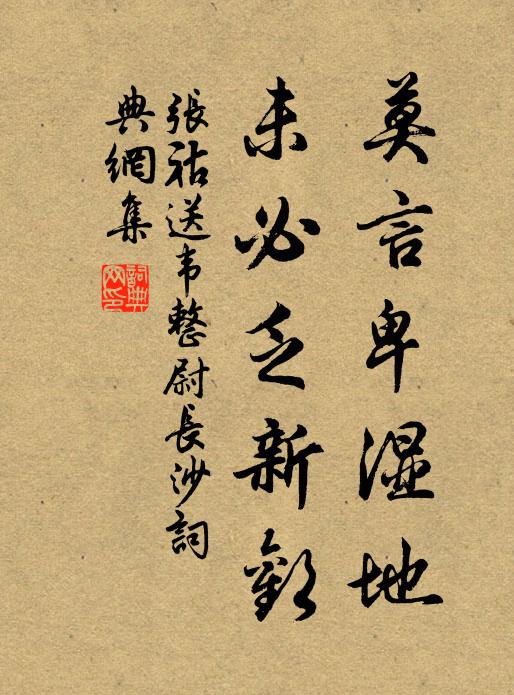 莫言卑湿地
未必乏新歡
張祜送韦整尉長沙詞
典網集
詞典
网印